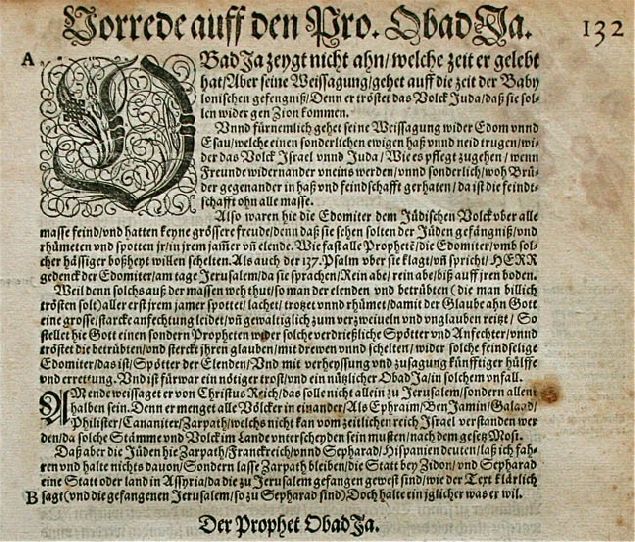 Vorrede auff den Pro. ObadJa.
132
A
OBadJa zeygt nicht ahn/welche zeit er gelebt
hat/Aber seine Weissagung/gehet auff die zeit der Baby
lonischen gefengniß/Denn er tröstet das Volck Juda/daß sie sol-
len wider gen Zion kommen.
Vnnd fürnemlich gehet seine Weissagung wider Edom vnnd
Esau/welche einen sonderlichen ewigen haß vnnd neid trugen/wi-
der das Volck Jsrael vnnd Juda/Wie es pflegt zugehen/wenn
Freunde widernander vneins werden/vnnd sonderlich/woh Brü-
der gegenander in haß vnd feindschafft gerhaten/da ist die feindt-
schafft ohn alle masse.
Also waren hie die Edomiter dem Jüdischen Volck vber alle
masse feind/vnd hatten keyne grössere freude/denn daß sie sehen solten der Jüden gefängniß/vnd
rhümeten vnd spotten jr/in jrem jam̃er vñ elende. Wie fast alle Prophetẽ/die Edomiter/vmb sol-
cher hässiger boßheyt willen schelten. Als auch der 137. Psalm vber sie klagt/vñ spricht/HERR
gedenck der Edomiter/am tage Jerusalem/da sie sprachen/Rein abe/rein abe/biß auff jren boden.
Weil denn solchs auß der massen weh thut/so man der elenden vnd betrübten (die man billich
trösten solt) aller erst jrem jamer spottet/lachet/trotzet vnnd rhümet/damit der Glaube ahn Gott
eine grosse/starcke anfechtung leidet/vñ gewaltiglich zum verzweiueln vnd vnglauben reitzt/So
stellet hie Gott einen sondern Propheten wider solche verdrießliche Spötter vnd Anfechter/vnnd
tröstet die betrübten/vnd sterckt jhren glauben/mit drewen vnnd schelten/wider solche feindselige
Edomiter/das ist/Spötter der Elenden/Vnd mit verheyssung vnd zusagung künfftiger hülffe
vnd errettung. Vnd ist fürwar ein nötiger trost/vnd ein nützlicher ObadJa/in solchem vnfall.
AM ende weissaget er von Christus Reich/das solle nicht allein zu Jerusalem/sondern allent
halben sein. Denn er menget alle Völcker in einander/Als Ephraim/BenJamin/Galaad/
Philister/Cananiter/Zarpath/welchs nicht kan vom zeitlichen reich Jsrael verstanden wer
den/da solche Stämme vnd Volck im Lande vnterscheyden sein musten/nach dem gesetz Mosi.
Daß aber die Jüden hie Zarpath/Franckreich/vnnd Sepharad/Hispanien deuten/laß ich fah-
ren vnd halte nichts dauon/Sondern lasse Zarpath bleiben/die Statt bey Zidon/vnd Sepharad
eine Statt oder land in Assyria/da die zu Jerusalem gefangen gewest sind/wie der Text klärlich
B
sagt (vnd die gefangenen Jerusalem/so zu Sepharad sind) Doch halte ein jglicher was er wil.
Der Prophet ObadJa.